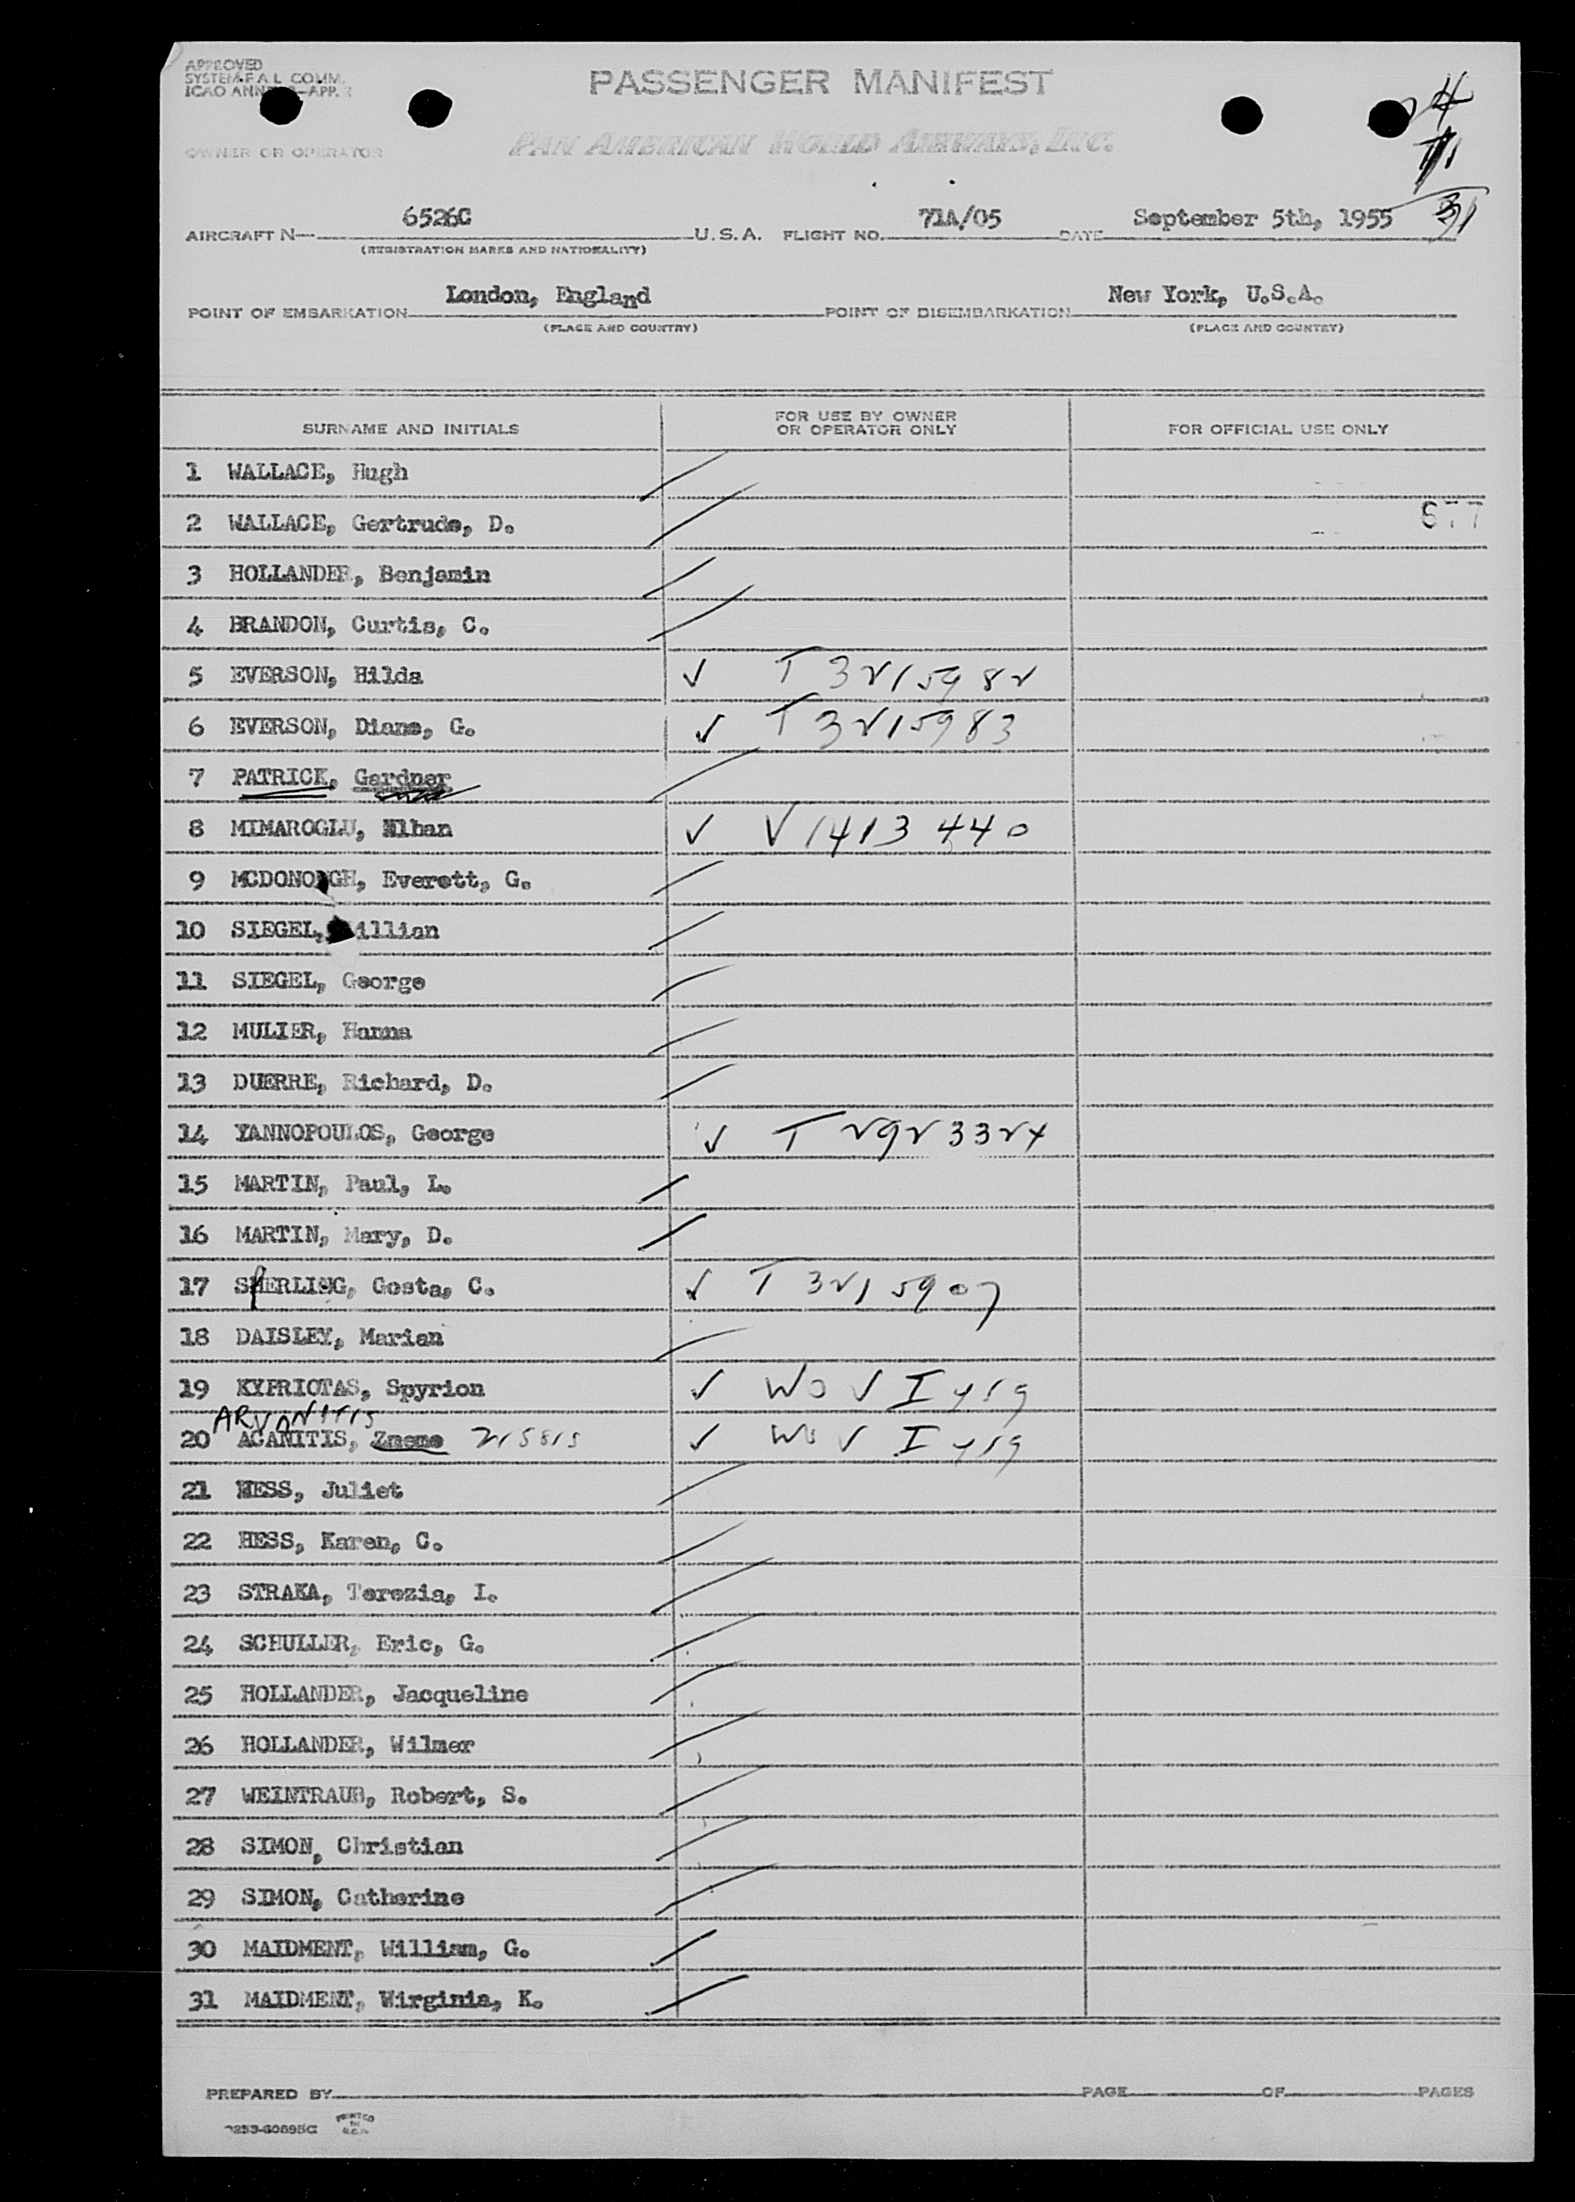 APPROVED
SYSTEM F A L COMM.
ICAO ANNEX 9-APP.
PASSENGER MANIFEST
OWNER OR OPERATOR
PAN AMERICAN WORLD AIRWAYS, INC.
31
AIRCRAFT N— 6526C U.S.A. FLIGHT NO. 71A/05 DATE September 5th, 1955
(REGISTRATION MARKS AND NATIONALITY)
POINT OF EMBARKATION London, England POINT OF DISEMBARKATION New York, U.S.A.
(PLACE AND COUNTRY) (PLACE AND COUNTRY)
SURNAME AND INITIALS FOR USE BY OWNER OR OPERATOR ONLY FOR OFFICIAL USE ONLY
1 WALLACE, Hugh
2 WALLACE, Gertrude, D. 577
3 HOLLANDER, Benjamin
4 BRANDON, Curtis, C.
5 EVERSON, Hilda ✓ T 3215982
6 EVERSON, Diane, G. ✓ T 3215983
7 PATRICK, Gardner
8 MIMAROGLU, Ilhan ✓ V1413440
9 MCDONOUGH, Everett, G.
10 SIEGEL, Lillian
11 SIEGEL, George
12 MULIER, Hanna
13 DUERRE, Richard, D.
14 YANNOPOULOS, George ✓ T 2923324
15 MARTIN, Paul, L.
16 MARTIN, Mary, D.
17 SPERLING, Gosta, C. ✓ T 3215907
18 DAISLEY, Marian
19 KYPRIOTAS, Spyrion ✓ WO V I 4519
ARVANITIS
20 ACANITIS, Zneme 215815 ✓ WO V I 4519
21 HESS, Juliet
22 HESS, Karen, C.
23 STRAKA, Terezia, I.
24 SCHULLER, Eric, G.
25 HOLLANDER, Jacqueline
26 HOLLANDER, Wilmer
27 WEINTRAUB, Robert, S.
28 SIMON, Christian
29 SIMON, Catherine
30 MAIDMENT, William, G.
31 MAIDMENT, Wirginia, K.
PREPARED BY PAGE OF PAGES
PRINTED IN U.S.A.